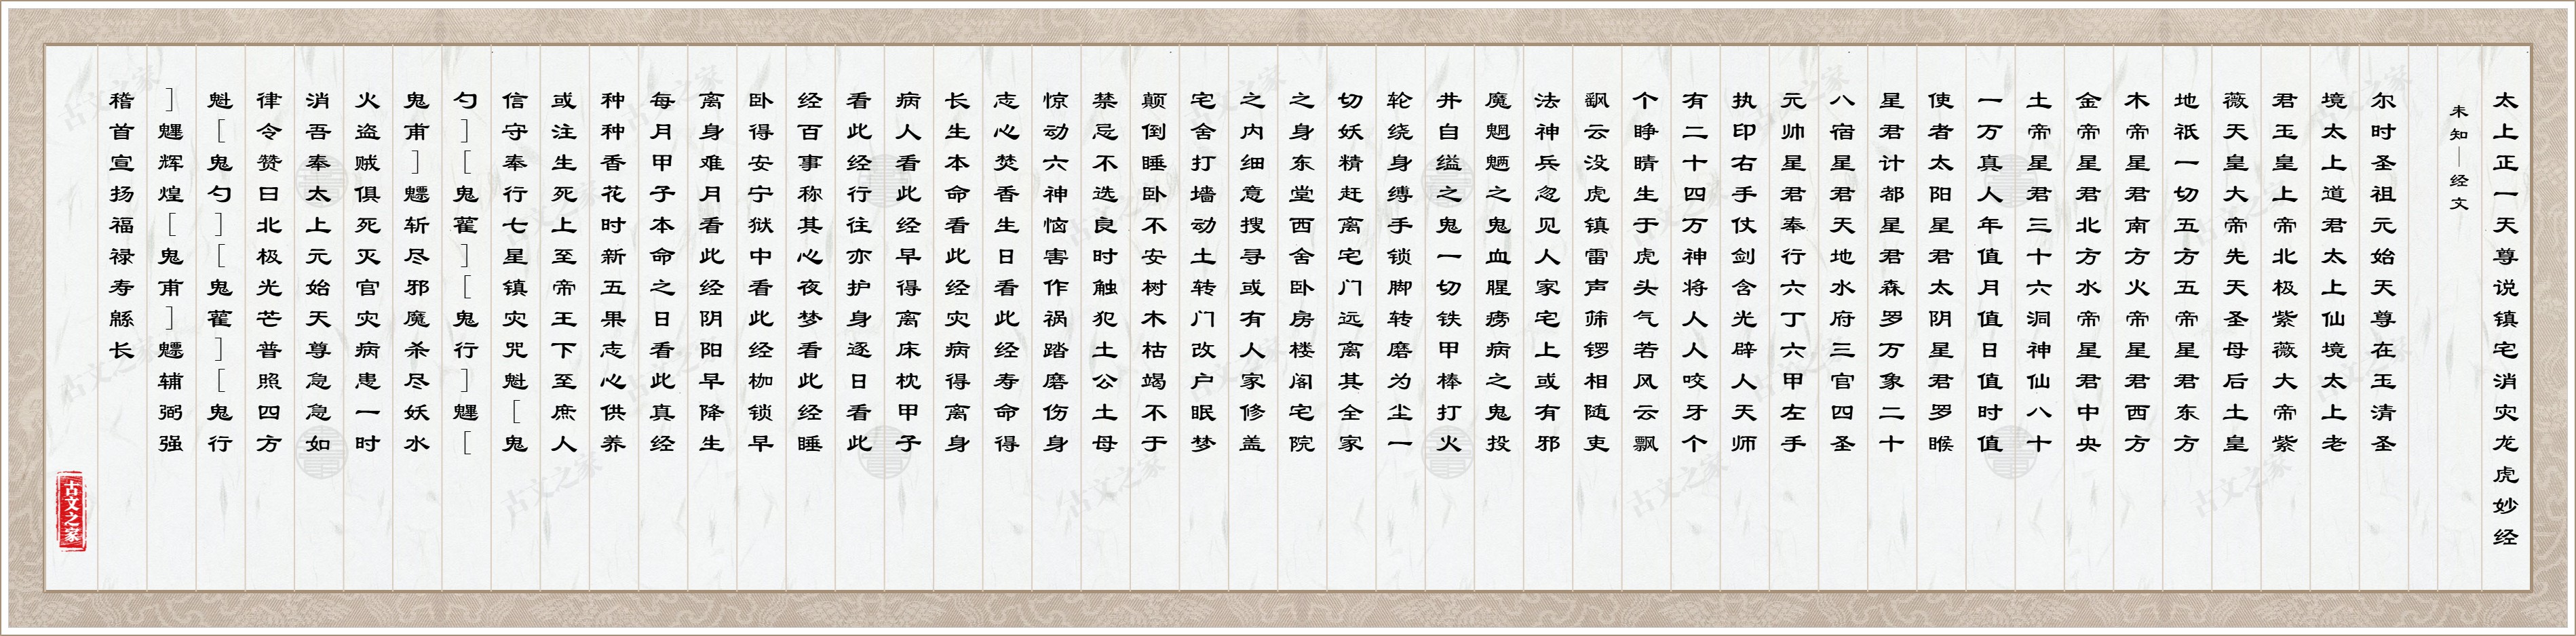 太上正一天尊说镇宅消灾龙虎妙经
未知—经文
尔时圣祖元始天尊在玉清圣
境太上道君太上仙境太上老
君玉皇上帝北极紫薇大帝紫
薇天皇大帝先天圣母后土皇
地祇一切五方五帝星君东方
木帝星君南方火帝星君西方
金帝星君北方水帝星君中央
土帝星君三十六洞神仙八十
一万真人年值月值日值时值
使者太阳星君太阴星君罗睺
星君计都星君森罗万象二十
八宿星君天地水府三官四圣
元帅星君奉行六丁六甲左手
执印右手仗剑含光辟人天师
有二十四万神将人人咬牙个
个睁睛生于虎头气若风云飘
飖云没虎镇雷声筛锣相随吏
法神兵忽见人家宅上或有邪
魔魍魉之鬼血腥痨病之鬼投
井自缢之鬼一切铁甲棒打火
轮绕身缚手锁脚转磨为尘一
切妖精赶离宅门远离其全家
之身东堂西舍卧房楼阁宅院
之内细意搜寻或有人家修盖
宅舍打墙动土转门改户眠梦
颠倒睡卧不安树木枯竭不于
禁忌不选良时触犯土公土母
惊动六神恼害作祸踏磨伤身
志心焚香生日看此经寿命得
长生本命看此经灾病得离身
病人看此经早得离床枕甲子
看此经行往亦护身逐日看此
经百事称其心夜梦看此经睡
卧得安宁狱中看此经枷锁早
离身难月看此经阴阳早降生
每月甲子本命之日看此真经
种种香花时新五果志心供养
或注生死上至帝王下至庶人
信守奉行七星镇灾咒魁[鬼
勺][鬼雚][鬼行]魓[
鬼甫]魒斩尽邪魔杀尽妖水
火盗贼俱死灭官灾病患一时
消吾奉太上元始天尊急急如
律令赞曰北极光芒普照四方
魁[鬼勺][鬼雚][鬼行
]魓辉煌[鬼甫]魒辅弼强
稽首宣扬福禄寿緜长
古文之家